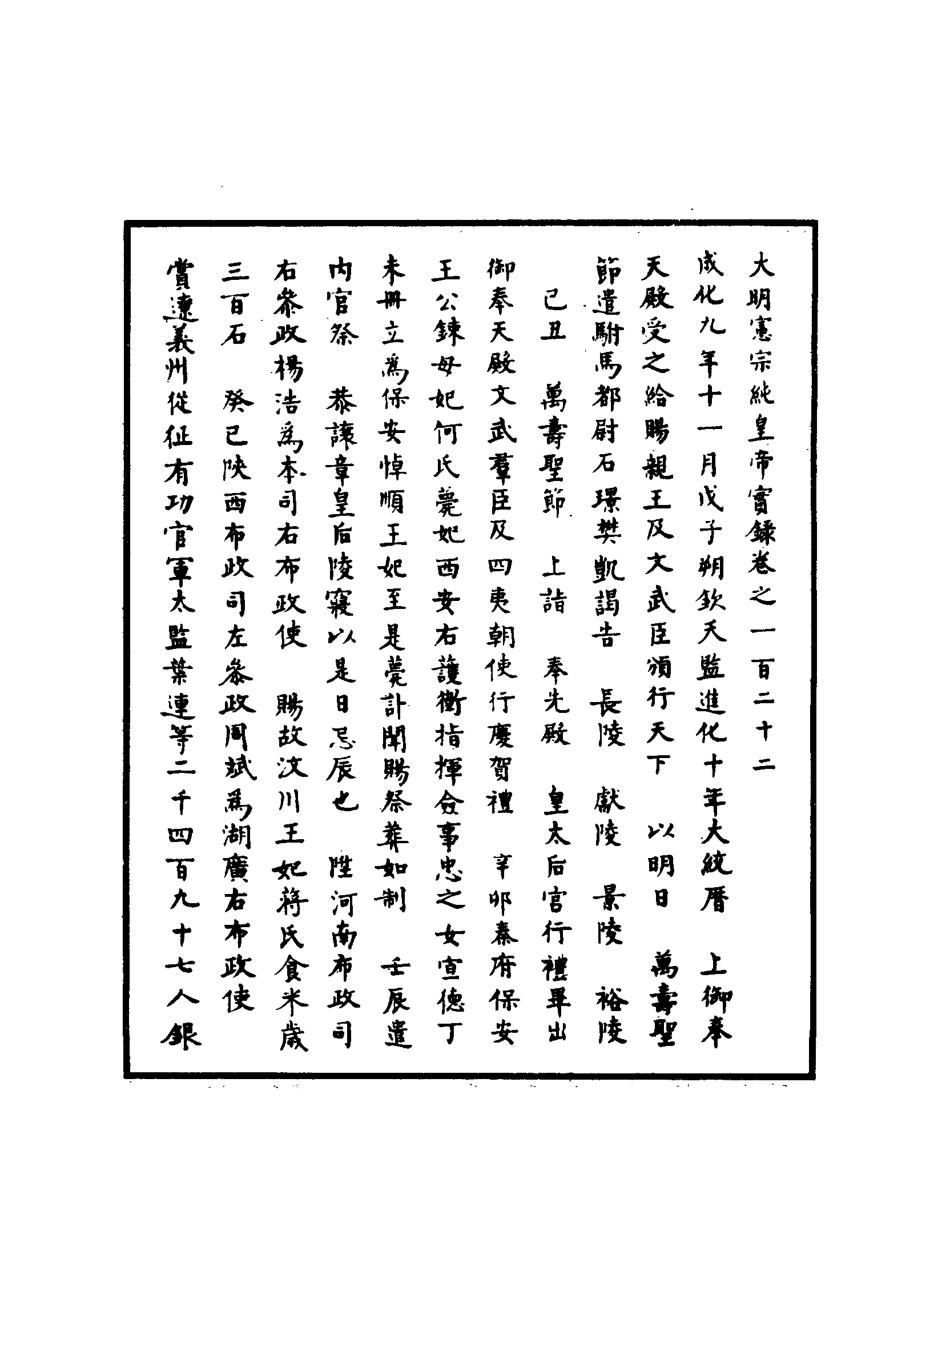 大明憲宗純皇帝實錄卷之一百二十二
成化九年十一月戊子朔欽天監進化十年大統曆　上御奉
天殿受之給賜親王及文武臣頒行天下　以明日　萬壽聖
節遣駙馬都尉石璟樊凱謁告　長陵　獻陵　景陵　裕陵
己丑　萬壽聖節　上詣　奉先殿　皇太后宮行禮畢出
御奉天殿文武羣臣及四夷朝使行慶賀禮　辛卯秦府保安
王公鍊母妃何氏薨妃西安右護衛指揮僉事忠之女宣德丁
未冊立為保安悼順王妃至是薨訃聞賜祭葬如制　壬辰遣
內官祭　恭讓章皇后陵寢以是日忌辰也　陞河南布政司
右參政楊浩為本司右布政使　賜故汶川王妃蔣氏食米歲
三百石　癸巳陝西布政司左參政周斌為湖廣右布政使
賞遼義州從征有功官軍太監葉連等二千四百九十七人銀